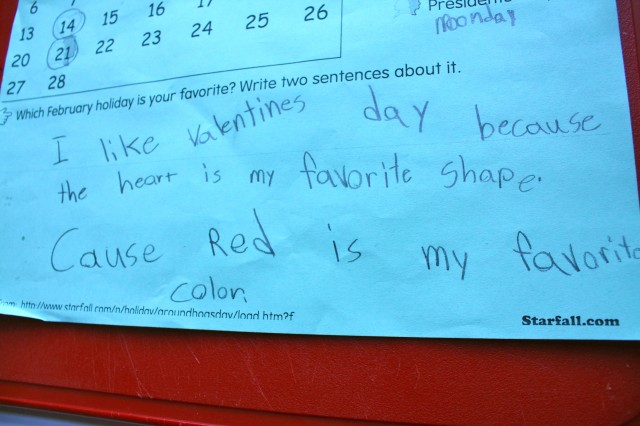 6
13 14 15 16 17
20 21 22 23 24 25 26
27 28
Moonday
Which February holiday is your favorite? Write two sentences about it.
I like Valentines day because
the heart is my favorite shape.
Cause Red is my favorite
color.
http://www.starfall.com/n/holiday/groundhogsday/load.htm?f
Starfall.com